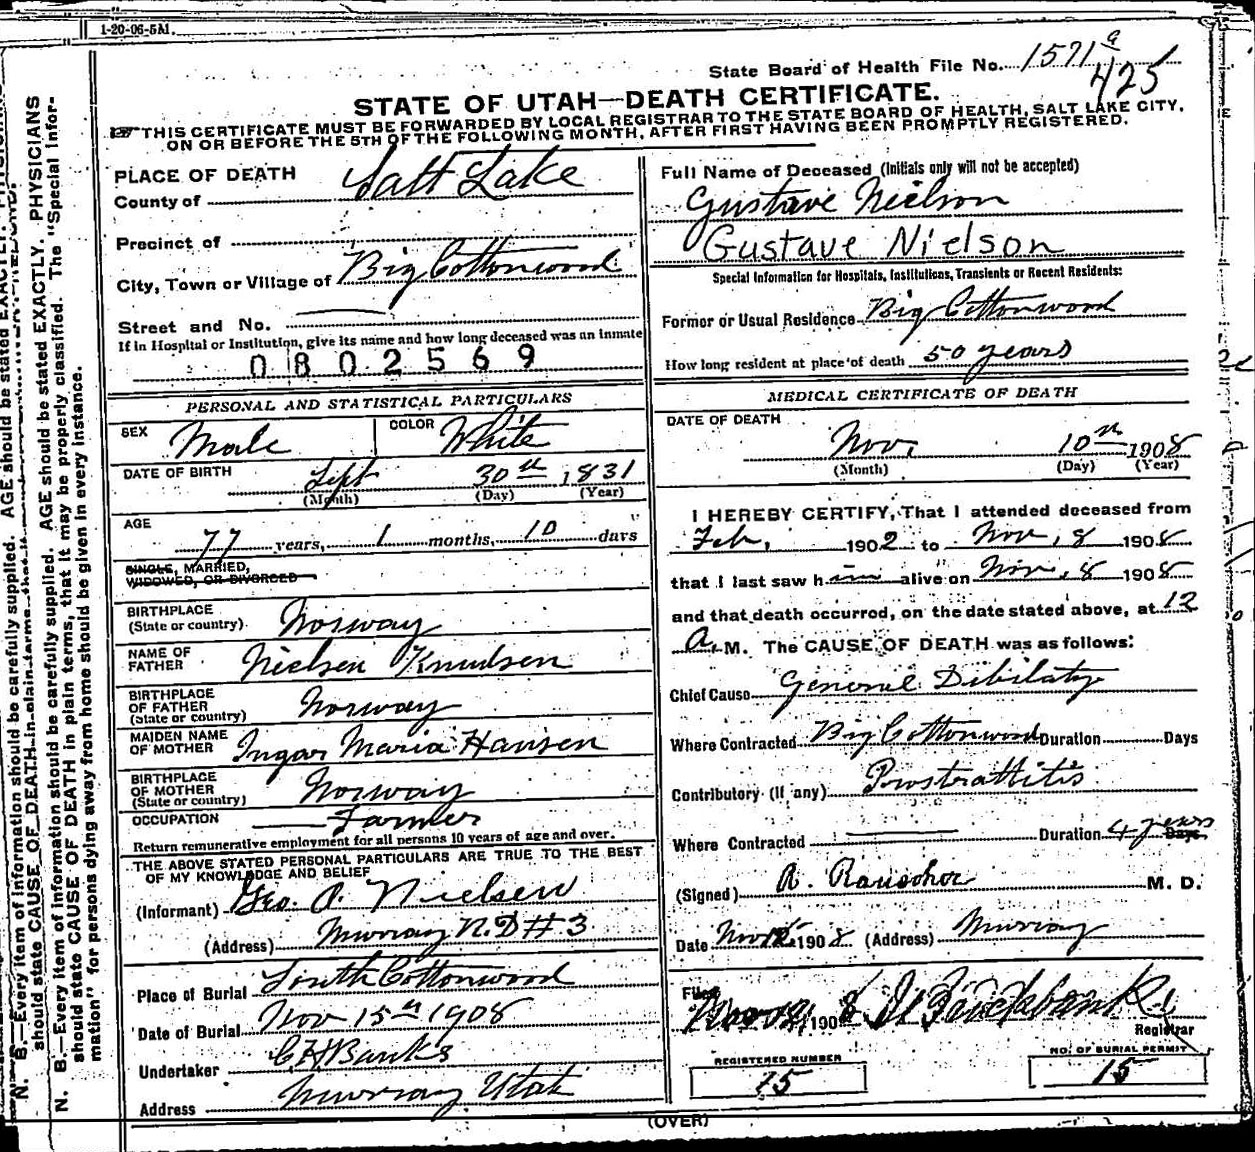 1-20-06-5M.
State Board of Health File No. 1571 a
425
STATE OF UTAH—DEATH CERTIFICATE.
THIS CERTIFICATE MUST BE FORWARDED BY LOCAL REGISTRAR TO THE STATE BOARD OF HEALTH, SALT LAKE CITY,
ON OR BEFORE THE 5TH OF THE FOLLOWING MONTH, AFTER FIRST HAVING BEEN PROMPTLY REGISTERED.
PLACE OF DEATH
County of Salt Lake
Precinct of
City, Town or Village of Big Cottonwood
Street and No.
If in Hospital or Institution, give its name and how long deceased was an inmate
0802569
PERSONAL AND STATISTICAL PARTICULARS
SEX Male COLOR White
DATE OF BIRTH Sept 30th, 1831
(Month) (Day) (Year)
AGE 77 years, 1 months, 10 days
SINGLE, MARRIED,
WIDOWED, OR DIVORCED
BIRTHPLACE
(State or country) Norway
NAME OF
FATHER Nielsen Knudsen
BIRTHPLACE
OF FATHER
(State or country) Norway
MAIDEN NAME
OF MOTHER Ingar Maria Hansen
BIRTHPLACE
OF MOTHER
(State or country) Norway
OCCUPATION Farmer
Return remunerative employment for all persons 10 years of age and over.
THE ABOVE STATED PERSONAL PARTICULARS ARE TRUE TO THE BEST
OF MY KNOWLEDGE AND BELIEF
(Informant) Geo. A. Nielsen
(Address) Murray R.D # 3
Place of Burial South Cottonwood
Date of Burial Nov 15th 1908
Undertaker Banks
Address Murray Utah
Full Name of Deceased (Initials only will not be accepted)
Gustave Nielson
Gustave Nielson
Special Information for Hospitals, Institutions, Transients or Recent Residents:
Former or Usual Residence Big Cottonwood
How long resident at place of death 50 years
MEDICAL CERTIFICATE OF DEATH
DATE OF DEATH
Nov. 10th 1908
(Month) (Day) (Year)
I HEREBY CERTIFY, That I attended deceased from
Feb. 1902 to Nov. 8 1908
that I last saw him alive on Nov. 8 1908
and that death occurred, on the date stated above, at 12
A. M. The CAUSE OF DEATH was as follows:
Chief Cause General Dibilaty
Where Contracted Big Cottonwood Duration Days
Contributory (If any) Prostratitis
Where Contracted Duration 4 years Days
(Signed) A. Rauscher M. D.
Date Nov 1908 (Address) Murray
Filed 1908
Registrar
REGISTERED NUMBER
15
NO. OF BURIAL PERMIT
15
(OVER)
N. B.—Every item of information should be carefully supplied. AGE should be stated EXACTLY. PHYSICIANS
should state CAUSE OF DEATH in plain terms, that it may be properly classified. The "Special Infor-
mation" for persons dying away from home should be given in every instance.